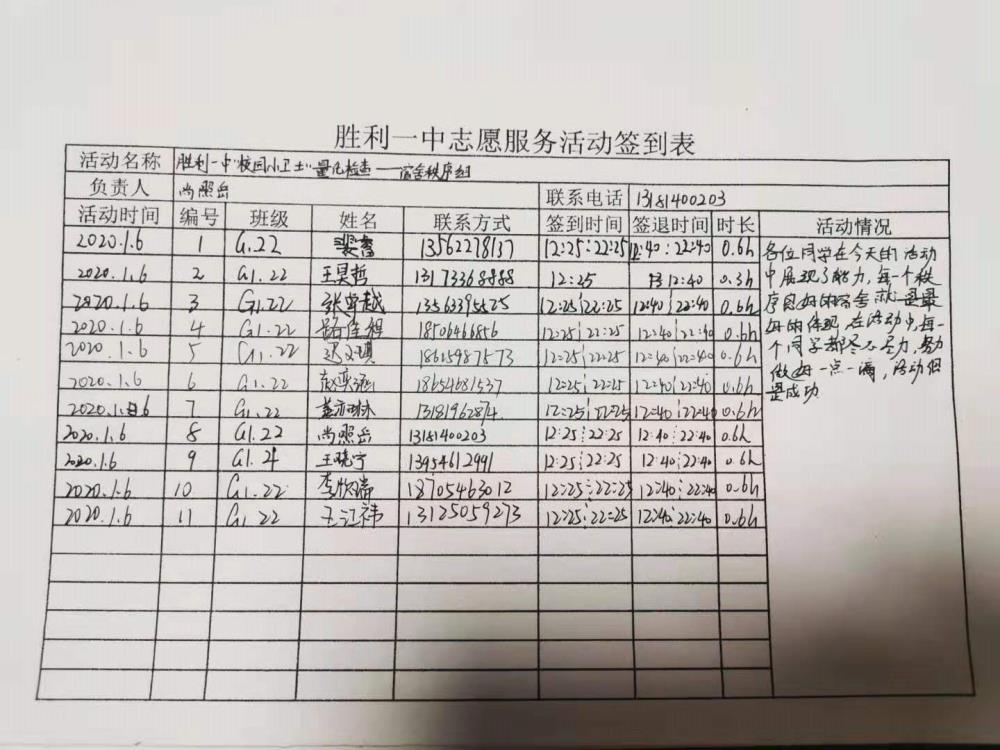 胜利一中志愿服务活动签到表
活动名称 胜利一中"校园小卫士"量化检查——宿舍秩序组
负责人 尚照岳 联系电话 13181400203
活动时间 编号 班级 姓名 联系方式 签到时间 签退时间 时长 活动情况
2020.1.6 1 G1.22 13562278137 12:25;22:25 12:40;22:40 0.6h
2020.1.6 2 G1.22 王昊哲 13173368888 12:25 12:40 0.3h
2020.1.6 3 G1.22 张宇越 12:25;22:25 12:40;22:40 0.6h
2020.1.6 4 G1.22 18506466856 12:25;22:25 12:40;22:40 0.6h
2020.1.6 5 G1.22 18615987573 12:25;22:25 12:40;22:40 0.6h
2020.1.6 6 G1.22 18654681537 12:25;22:25 12:40;22:40 0.6h
2020.1.6 7 G1.22 13181962874 12:25;22:25 12:40;22:40 0.6h
2020.1.6 8 G1.22 尚照岳 13181400203 12:25;22:25 12:40;22:40 0.6h
2020.1.6 9 G1.4 王晓宁 13954612991 12:25;22:25 12:40;22:40 0.6h
2020.1.6 10 G1.22 李欣瑞 18705463012 12:25;22:25 12:40;22:40 0.6h
2020.1.6 11 G1.22 王江祎 13125059273 12:25;22:25 12:40;22:40 0.6h
各位同学在今天的活动
中展现了能力,每一个秩
序良好的宿舍就是最
好的体现,在活动中,每一
个同学都尽心尽力,努力
做好一点一滴,活动很
是成功